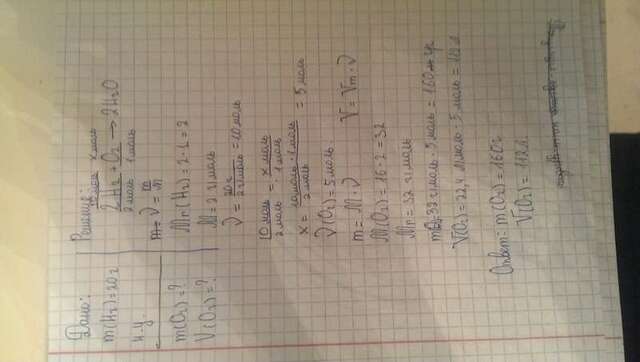 Дано:
m(H₂)=20г
н.у
m(O₂)=?
V(O₂)=?
Решение:
10 моль x моль
2H₂+O₂→2H₂O
2моль 1моль
ν=m/M
Mr(H₂)=2·1=2
M=2 г/моль
ν=20г/2г/моль=10моль
10 моль/2моль=x моль/1 моль
x=10моль·1моль/2 моль=5 моль
ν(O₂)=5моль
m=M·ν V=Vm·ν
M(O₂)=16·2=32
Mr=32 г/моль
mO₂=32г/моль·5 моль=160 гр
V(O₂)=22,4л/моль·5 моль=112л
Ответ: m(O₂)=160г
V(O₂)=112л